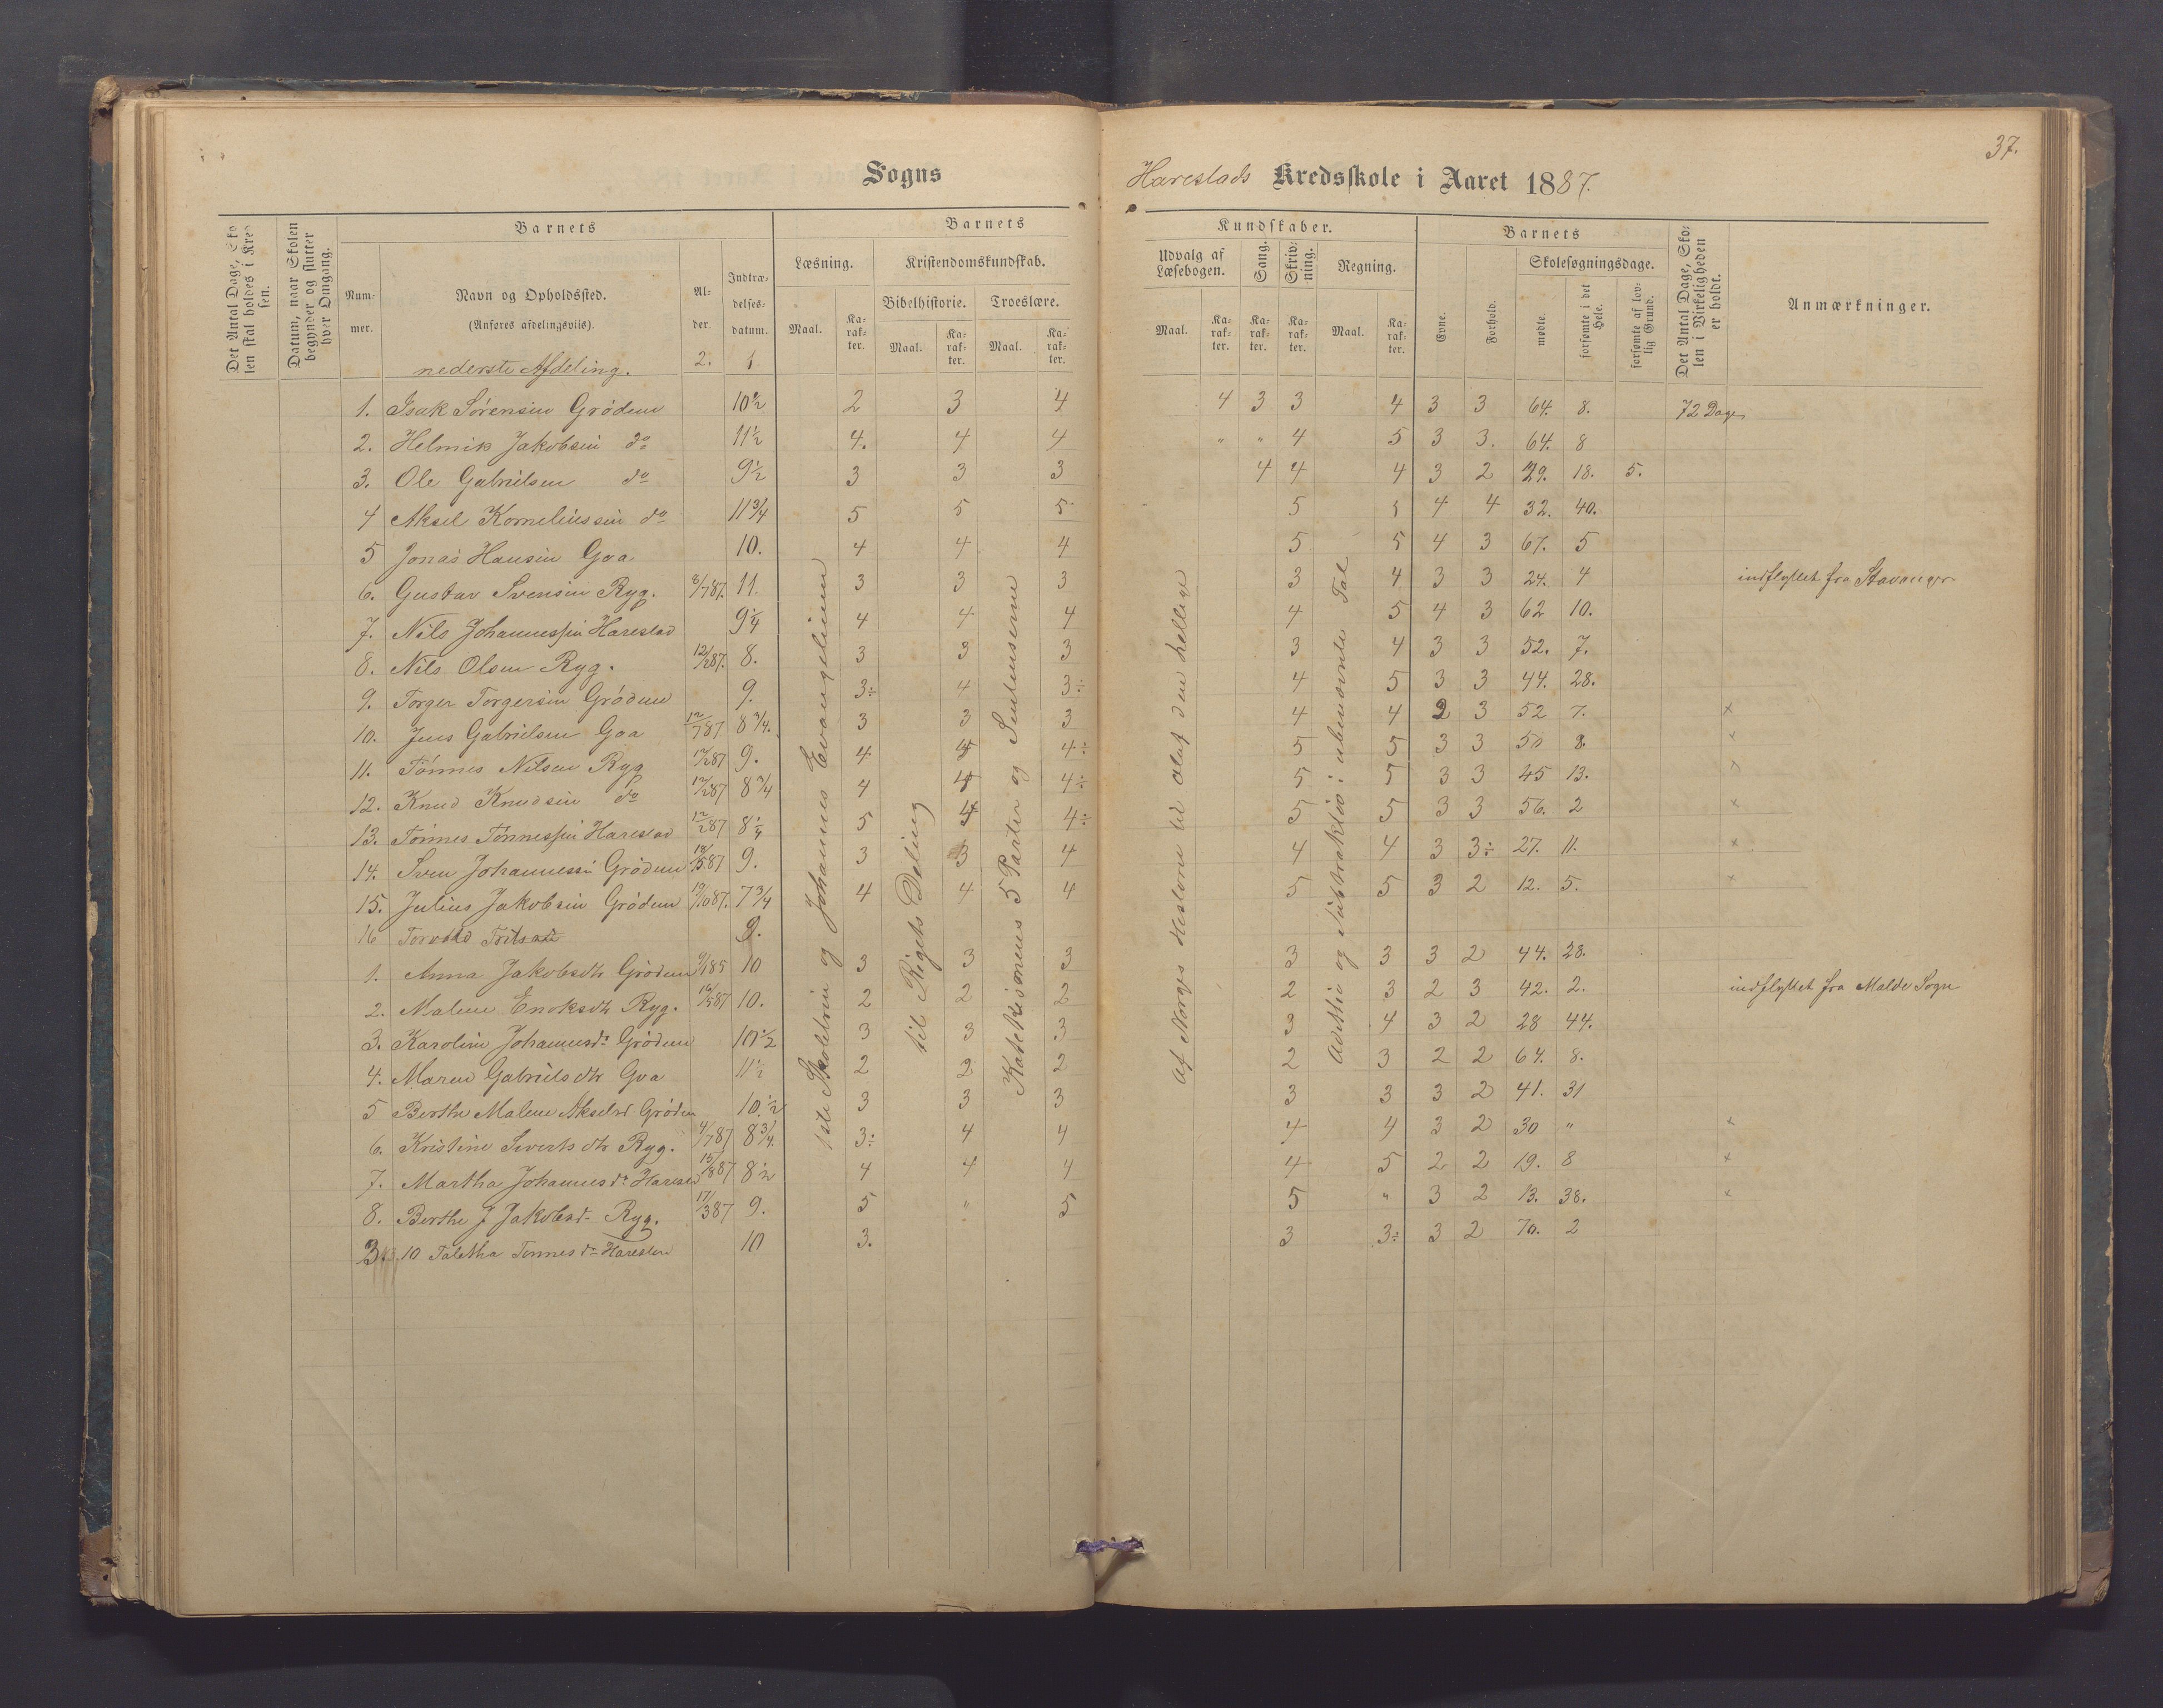 37.
Sogns
Harestads Kredsskole i Aaret 1887.
Det Antal Dage, Skolen skal holdes i Kredsen.
Datum, naar Skolen begynder og slutter hver Omgang.
Barnets
Nummer.
Navn og Opholdssted.
(Anføres afdelingsvis).
nederste Afdeling.
Alder.
2.
Indtrædelsesdatum.
1
Barnets
Læsning.
Maal.
Karakter.
Kristendomskundskab.
Bibelhistorie.
Maal.
Karakter.
Troeslære.
Maal.
Karakter.
Kundskaber.
Udvalg af Læsebogen.
Maal.
Karakter.
Sang.
Karakter.
Skrivning.
Karakter.
Regning.
Maal.
Karakter.
Barnets
Evne.
Forhold.
Skolesøgningsdage.
mødte.
forsømte i det Hele.
forsømte af lovlig Grund.
Det Antal Dage, Skolen i Virkeligheden er holdt.
Anmærkninger.
1. Isak Sörensen Grödem 10½ 2 3 4 4 3 3 4 3 3 64. 8. 72 Dage
2. Helmik Jakobsen do 11½ 4. 4 4 " " 4 5 3 3. 64. 8
3. Ole Gabrielsen do 9½ 3 3 3 4 4 4 3 2 29. 18. 5.
4 Aksel Korneliussen do 11¾ 5 5 5 5 5 4 4 32. 40.
5 Jonas Hansen Goa 10. 4 4 4 5 5 4 3 67. 5
6. Gustav Svensen Ryg. 2/787. 11. 3 3 3 3 4 3 3 24. 4 indflyttet fra Stavanger
7. Nils Johannessen Harestad 9¼ 4 4 4 4 5 4 3 62 10.
8. Nils Olsen Ryg. 12/287. 8. 3 3 3 3 4 3 3 52. 7.
9. Torger Torgersen Grödem 9. 3÷ 4 3÷ 4 5 3 3 44. 28.
10. Jens Gabrielsen Goa 12/787 8¾. 3 3 3 4 4 2 3 52 7. x
11. Tönnes Nilsen Ryg 12/287 9. 4 4 4÷ 5 5 3 3 50 8.
12. Knud Knudsen do 12/287 8¾ 4 4 4÷ 5 5 3 3 45 13.
13. Tönnes Tönnessen Harestad 12/287 8¼ 5 4 4÷ 5 5 3 3 56. 2 x
14. Sven Johannessen Grödem 587 9. 3 3 4 4 4 3 3÷ 27. 11. x
15. Julius Jakobsen Grödem 1087. 7¾ 4 4 4 5 5 3 2 12. 5. x
16 Torvald 9.
1. Anna Jakobsdtr Grödem 9/185 10 3 3 3 3 3 3 2 44. 28.
2. Malene Enoksdtr Ryg. 16/587 10. 2 2 2 2 3 2 3 42. 2. indflyttet fra Malde Sogn
3. Karoline Johannesdr Grödem 10½ 3 3 3 3 4 3 2 28 44.
4. Maren Gabrielsdtr Goa 11½ 2 2 2 2 3 2 2 64. 8.
5 Berthe Malene Akselsd Grödem 10.½ 3 3 3 3 3 3 2 41. 31
6. Kristine Sivertsdtr Ryg. 4/787 8¾. 3÷ 4 4 4 4 3 2 30 " x
7. Martha Johannesdr Harestad 15/887 8½ 4 4 4 4 5 2 2 19. 8 x
8. Berthe J Jakobsd Ryg. 17/387 9. 5 " 5 5 " 3 2 13. 38. x
10 Talette Tönnesdr Harestad 10 3. 3 3÷ 3 2 70. 2
1ste Skoletrin og Johannes Evangelium
til Rigets Deling
Katekismens 5 Parter og Sentenserne
Af Norges Historie til Olaf den hellige
Additie og Subtraktion i ubenævnte Tal